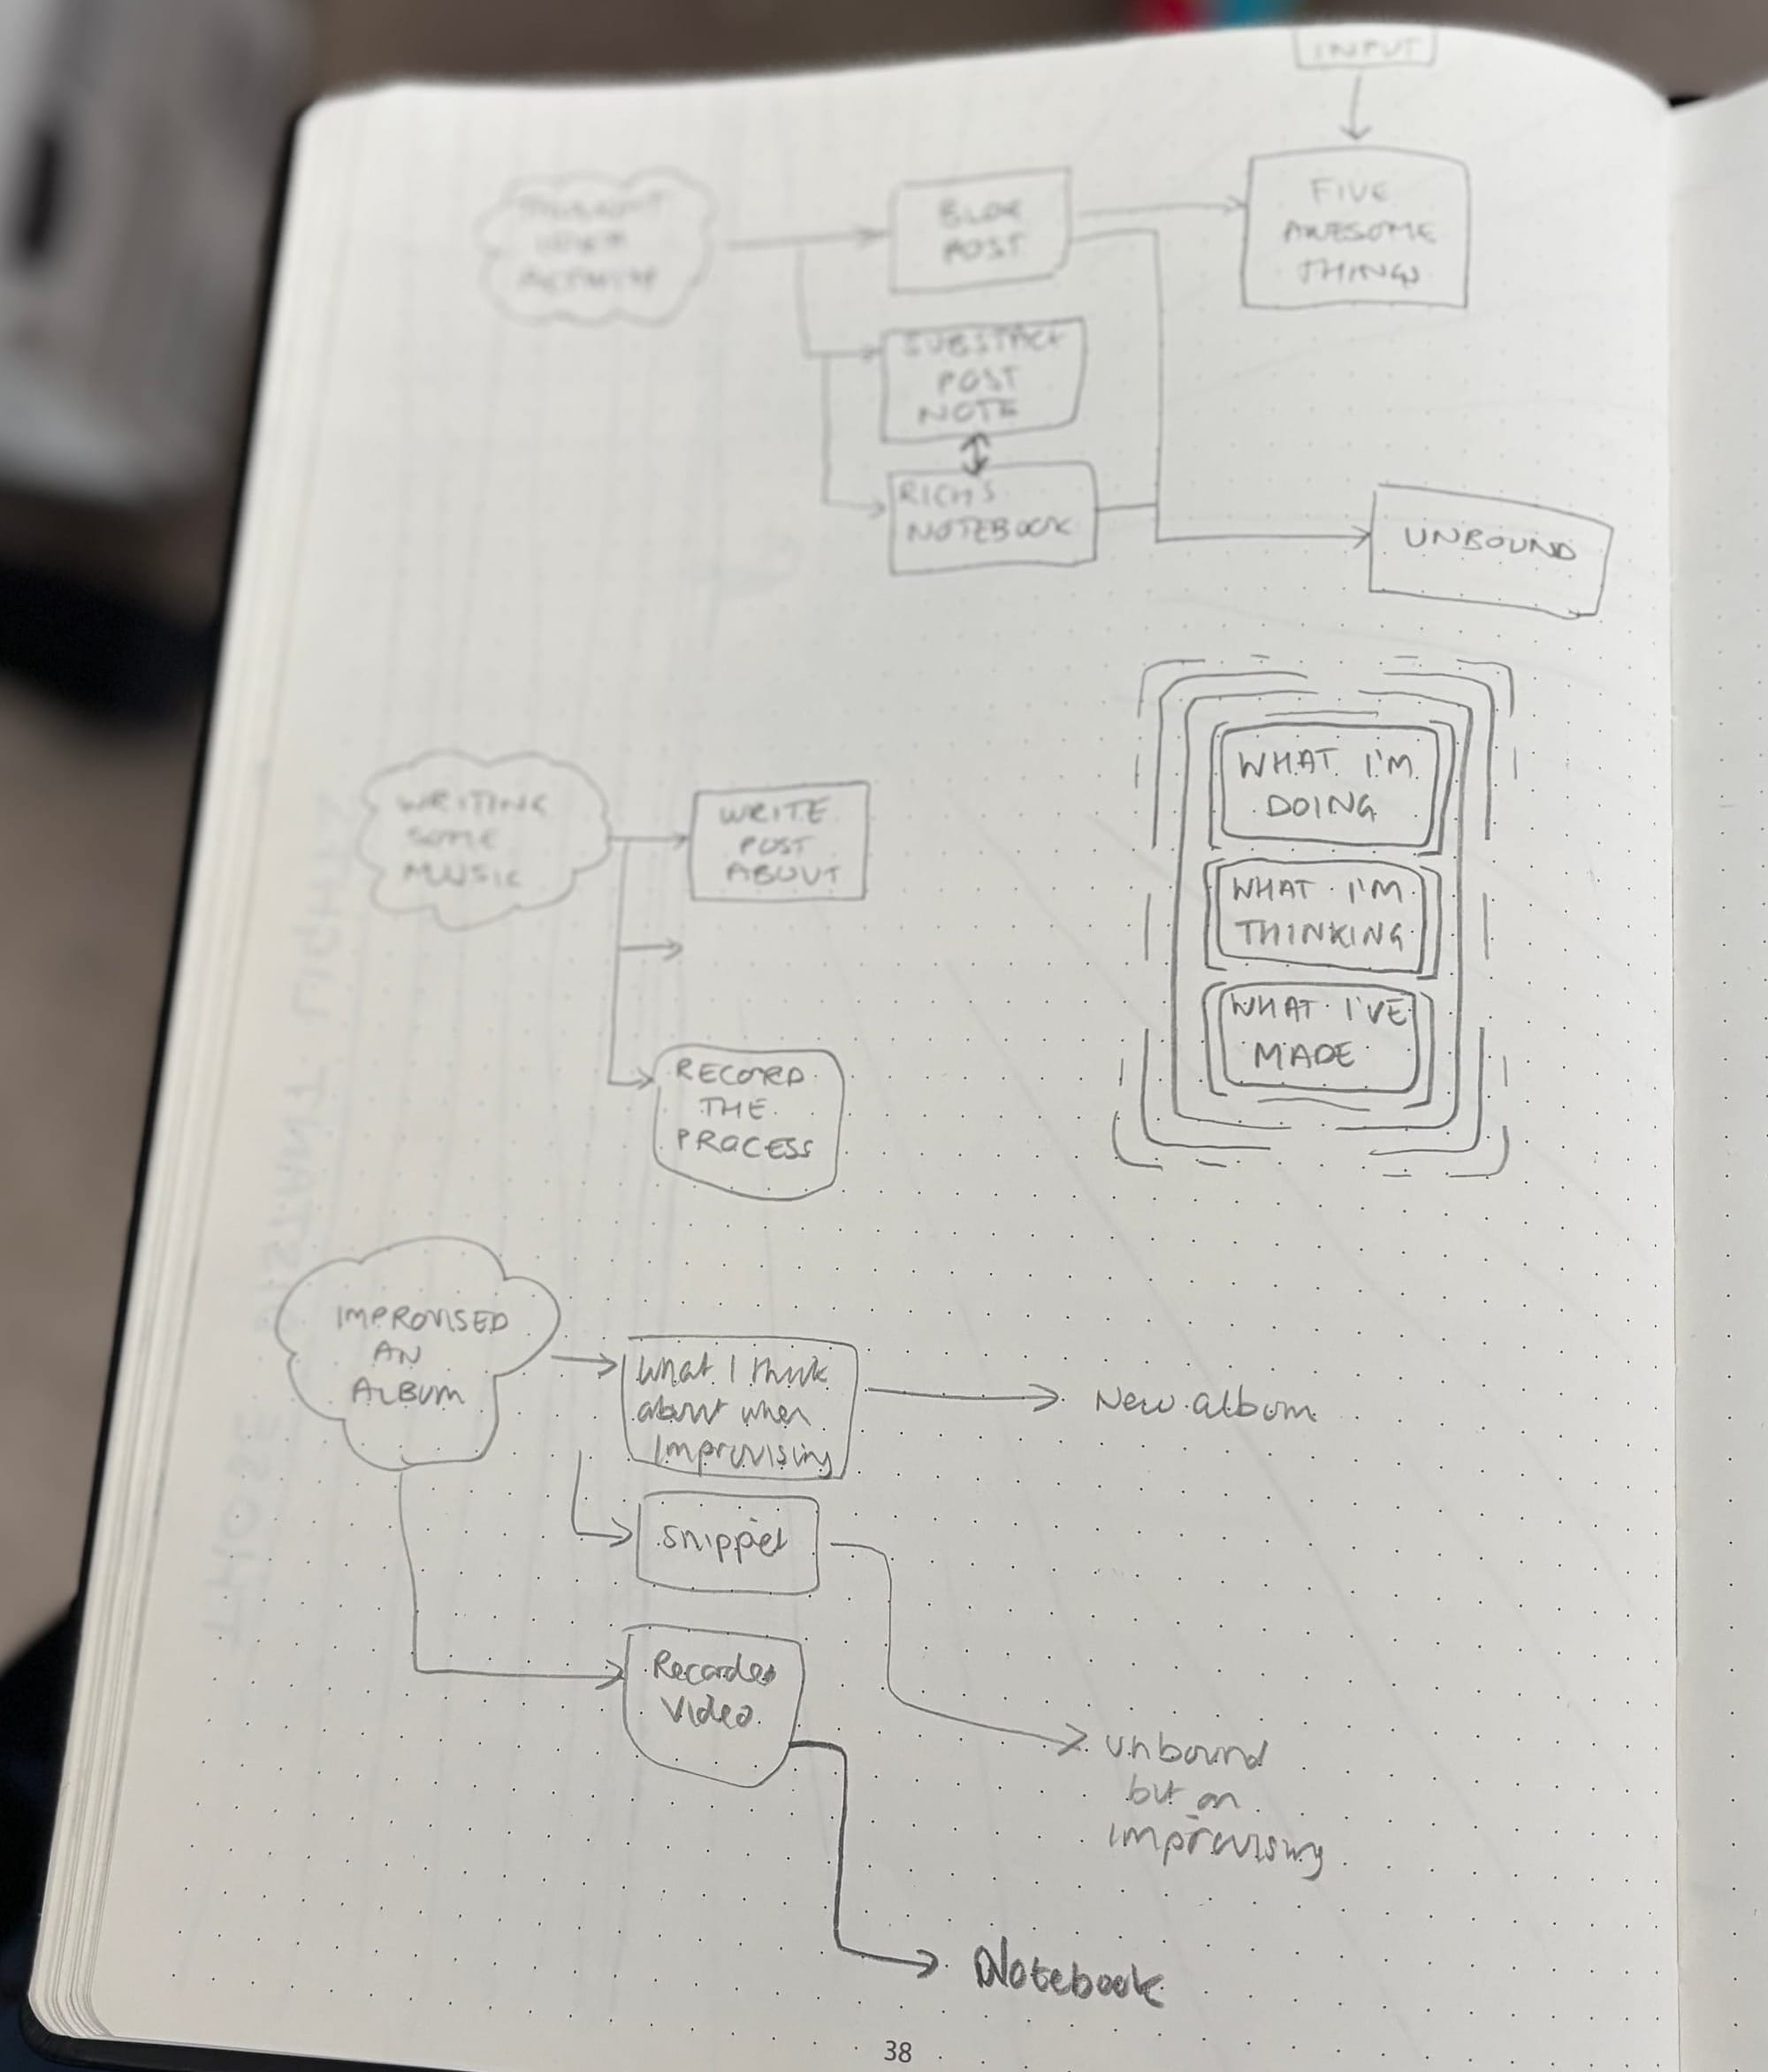 INPUT
THOUGHT
IDEA
ACTIVITY
BLOG
POST
FIVE
AWESOME
THINGS
SUBSTACK
POST
NOTE
RICH'S
NOTEBOOK
UNBOUND
WRITING
SOME
MUSIC
WRITE
POST
ABOUT
RECORD
THE
PROCESS
WHAT I'M
DOING
WHAT I'M
THINKING
WHAT I'VE
MADE
IMPROVISED
AN
ALBUM
What I think
about when
Improvising
New album
Snippet
Recorded
Video
unbound
but on
improvising
Notebook
38